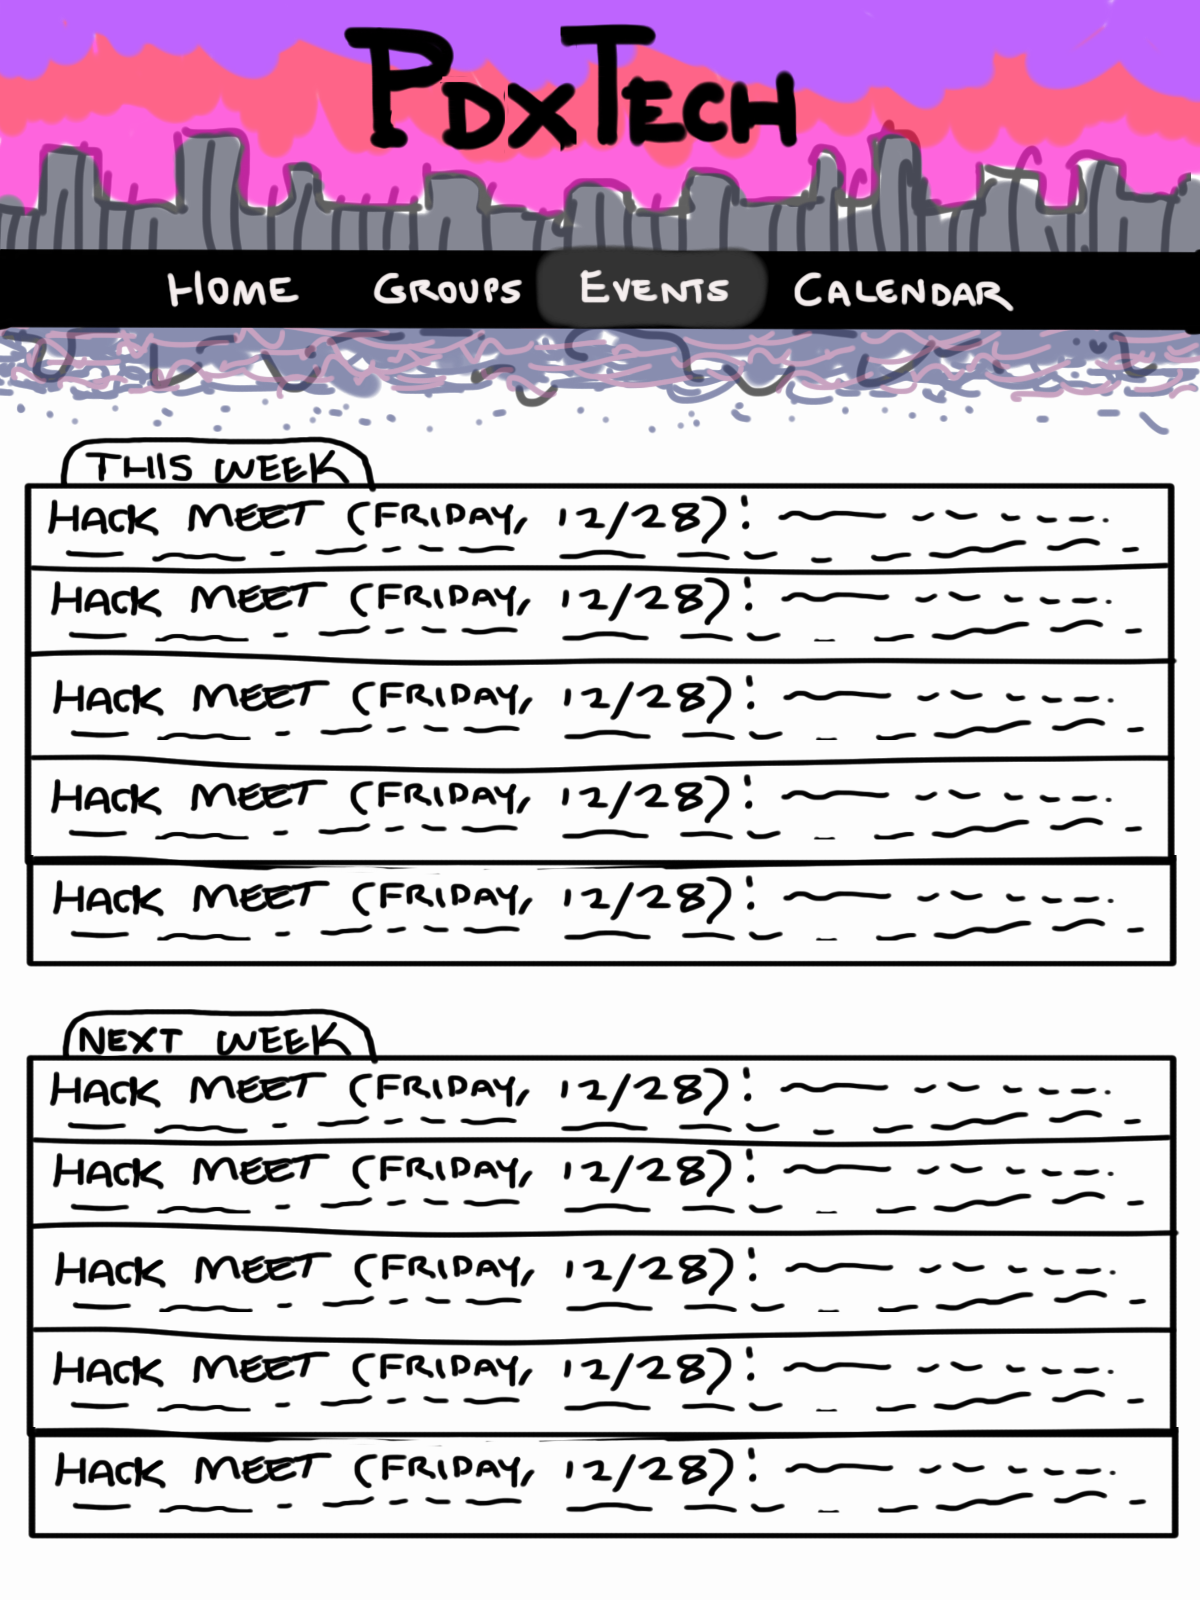 PDXTECH
HOME GROUPS EVENTS CALENDAR
THIS WEEK
HACK MEET (FRIDAY, 12/28):
HACK MEET (FRIDAY, 12/28):
HACK MEET (FRIDAY, 12/28):
HACK MEET (FRIDAY, 12/28):
HACK MEET (FRIDAY, 12/28):
NEXT WEEK
HACK MEET (FRIDAY, 12/28):
HACK MEET (FRIDAY, 12/28):
HACK MEET (FRIDAY, 12/28):
HACK MEET (FRIDAY, 12/28):
HACK MEET (FRIDAY, 12/28):